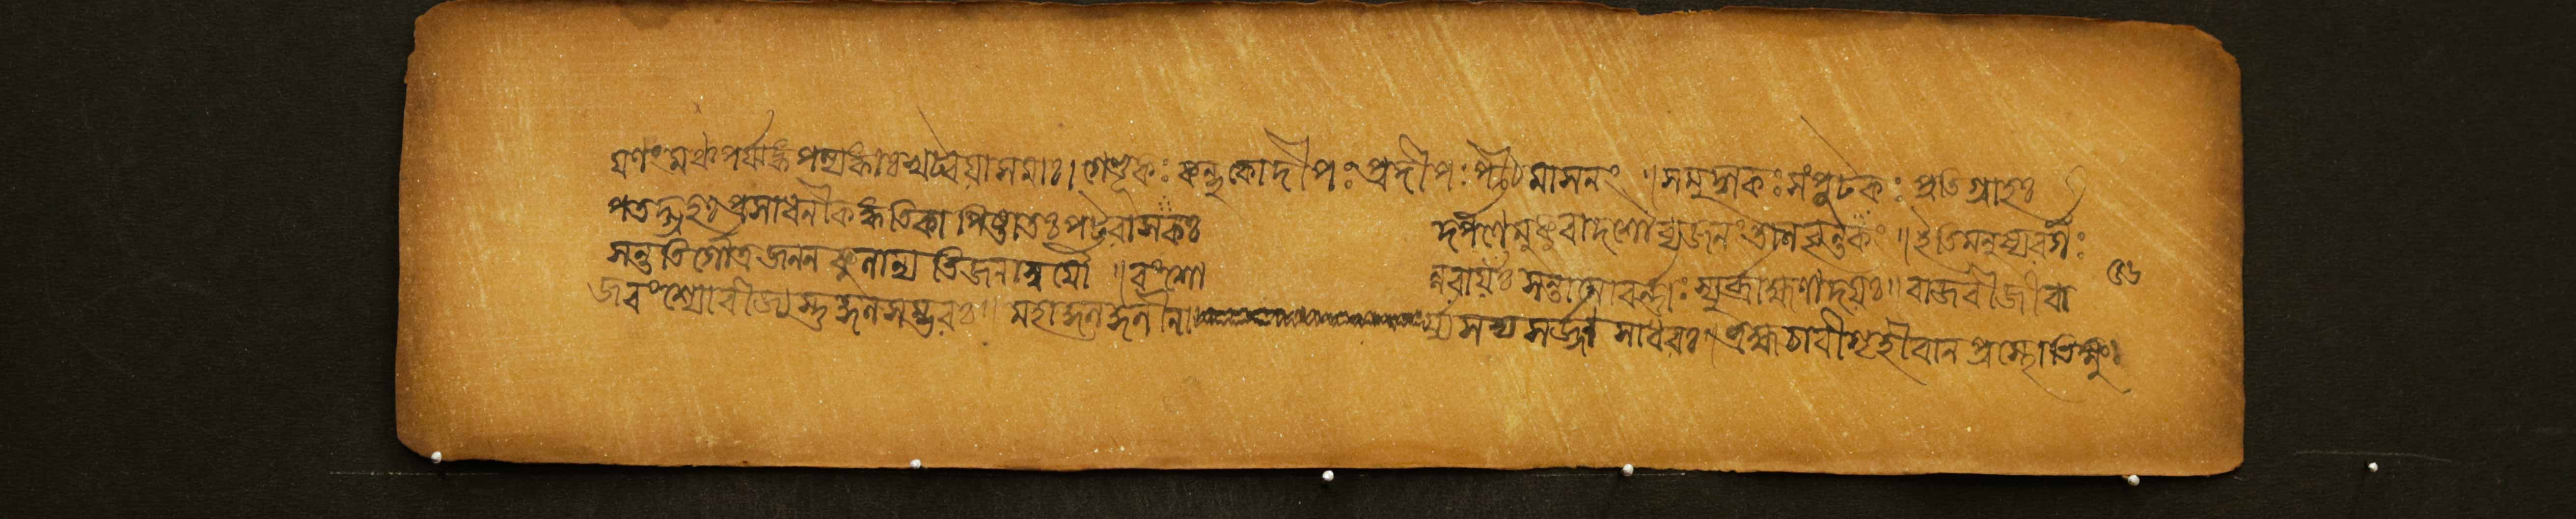 য়ণং মঞ্চপর্য্যঙ্ক পল্যঙ্কাঃ খট্বয়া সমাঃ। গেণ্ডূকঃ কন্দুকো দীপঃ প্রদীপঃ পীঠমাসনং ॥ সমুদ্গকঃ সংপুটকঃ প্রতিগ্রাহঃ
পতদ্গ্রহঃ প্রসাধনী কঙ্কতিকা পিষ্টাতঃ পটবাসকঃ দর্পণে মুকুরাদর্শৌ ব্যজনং তালবৃন্তকং ॥ ইতি মনুষ্যবর্গঃ
সন্ততির্গোত্রজনন কুলান্যভিজনান্বয়ৌ ॥ বংশো ন্ববায়ঃ সন্তানো বর্ণাঃ স্যুর্ব্রাহ্মণাদয়ঃ ॥ রাজবীজী রা ৫৬
জবংশ্যো বীজ্যস্তু কুলসম্ভবঃ ॥ মহাকুলকুলীনা র্য্যসভ্যসজ্জন সাধবঃ। ব্রহ্মচারী গৃহী বানপ্রস্থো ভিক্ষুঃ